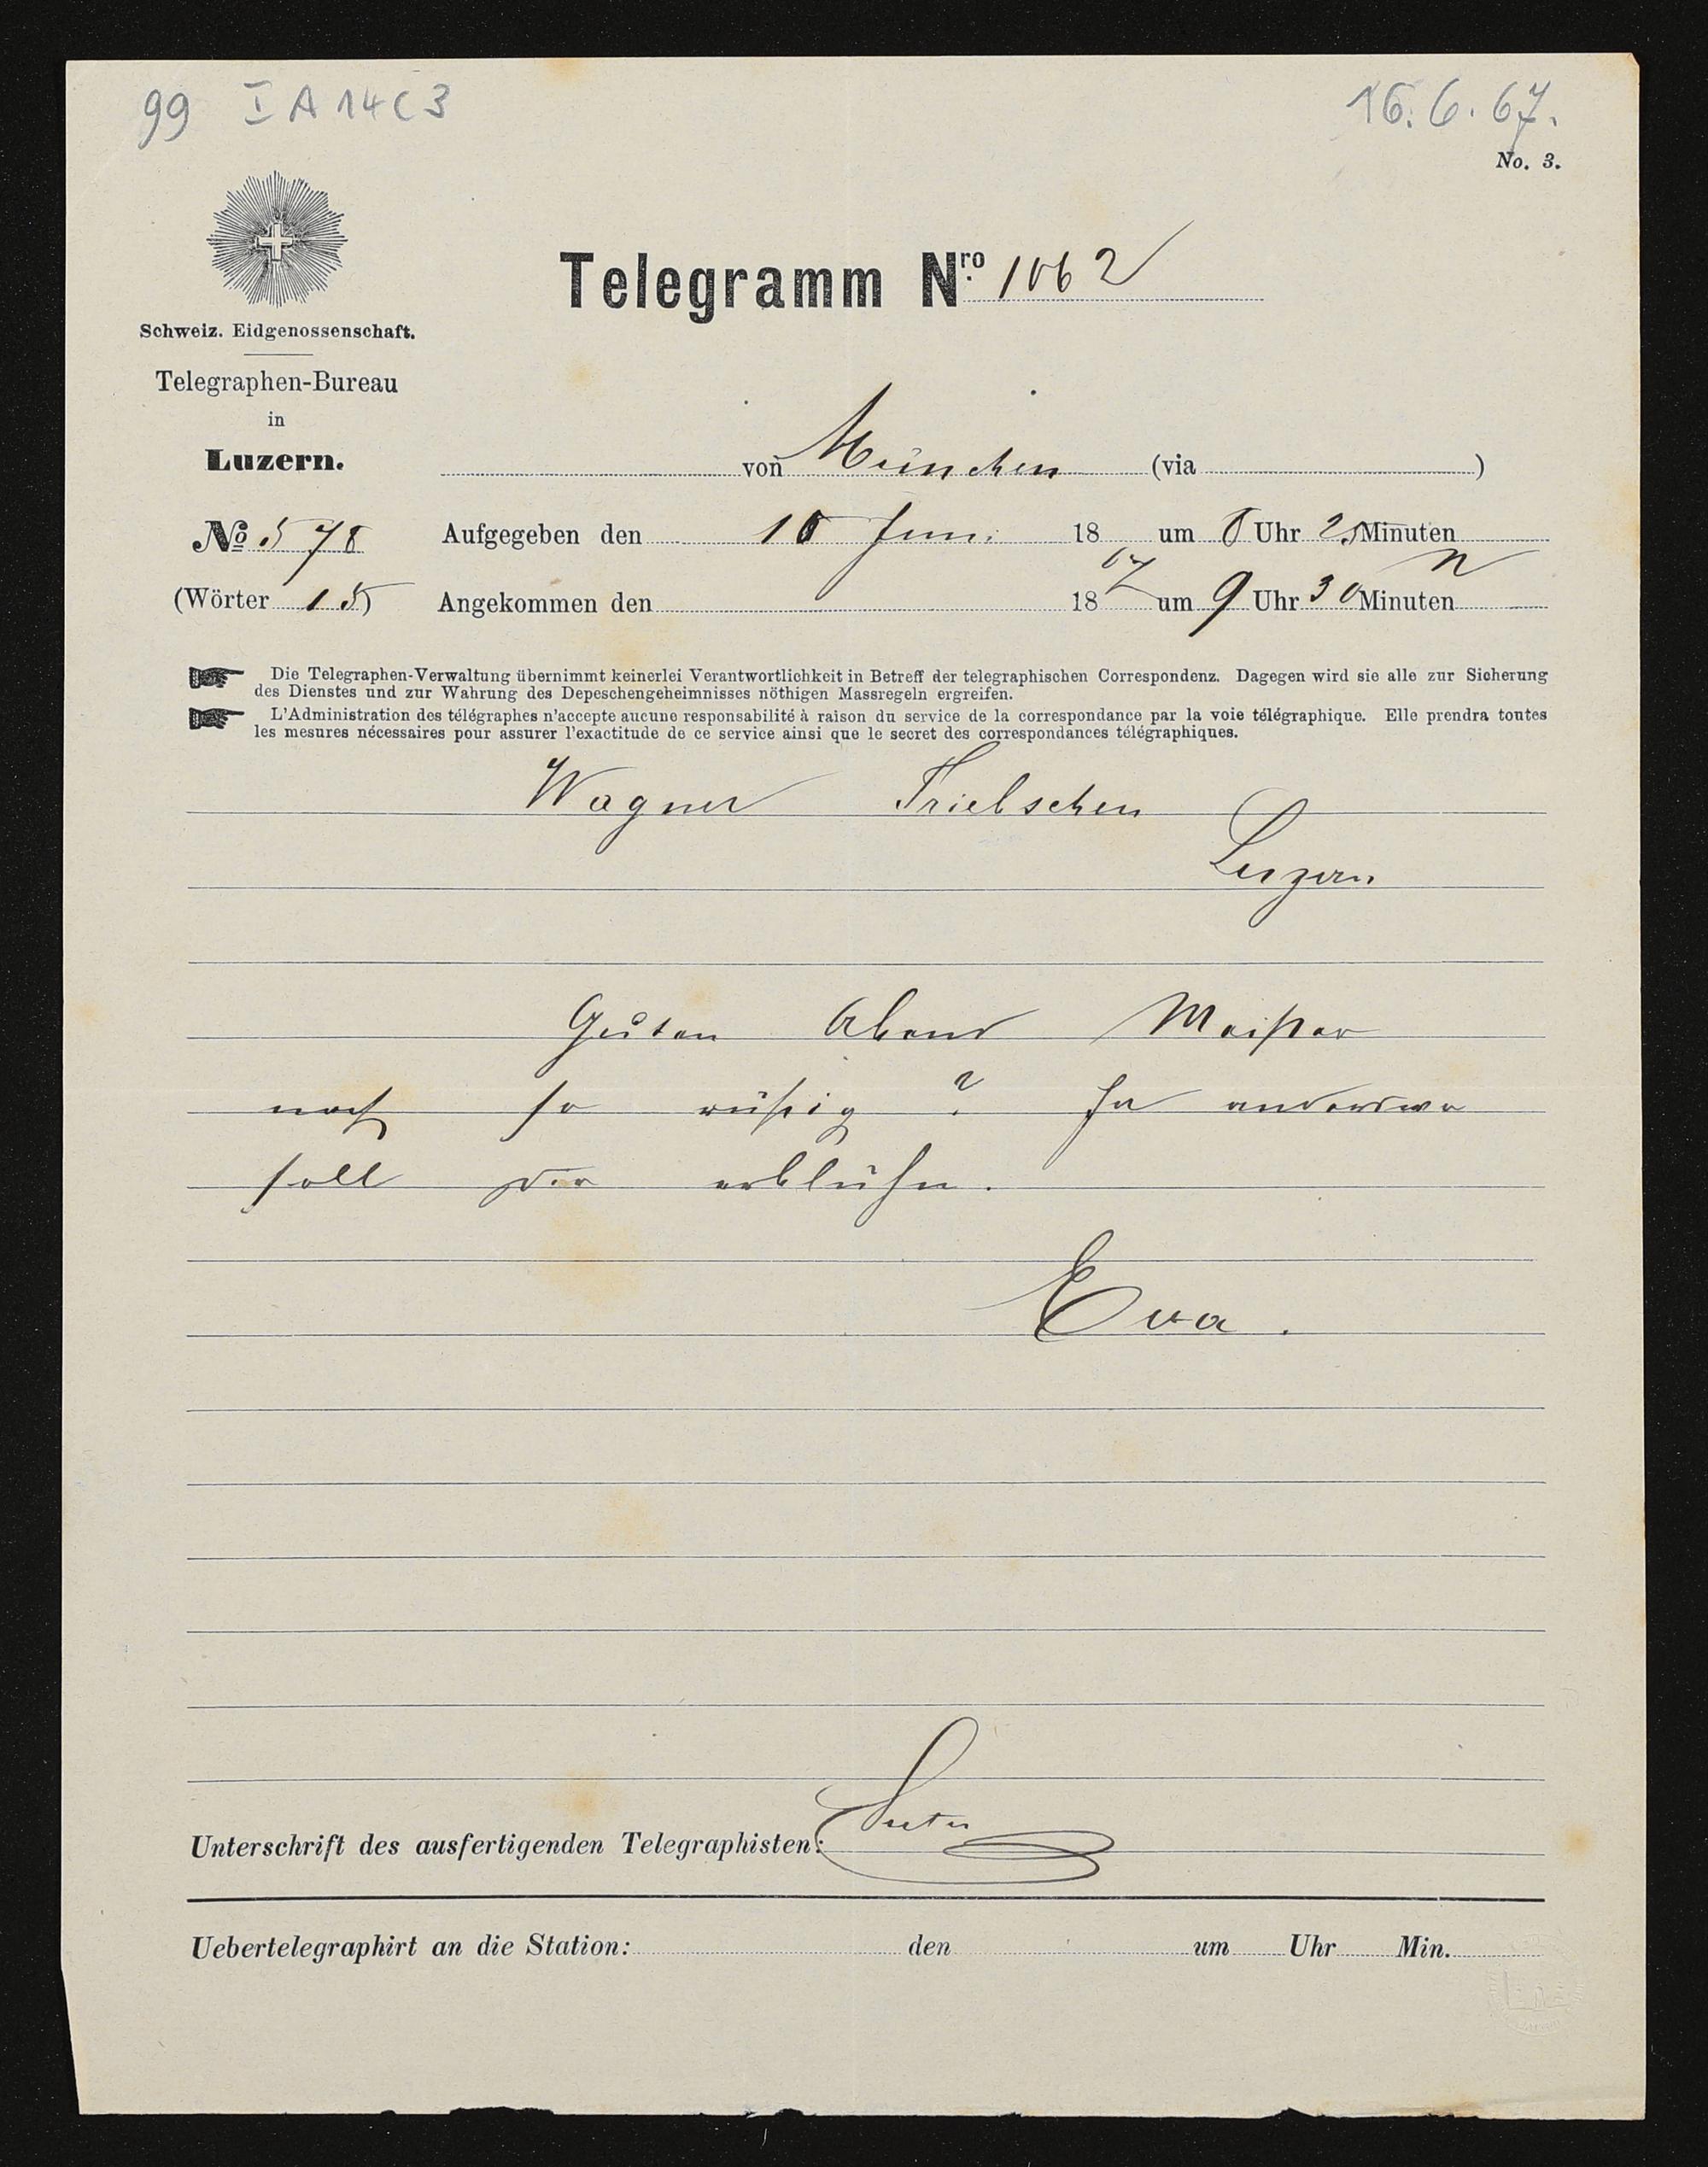 99 I A 14 C 3
16. 6. 67.
No. 3.
Telegramm Nro. 1062
Schweiz. Eidgenossenschaft.
Telegraphen-Bureau
in
Luzern.
von München (via )
No 578 Aufgegeben den 16 Juni 18 um 8 Uhr 25 Minuten
(Wörter 15) Angekommen den 1867 um 9 Uhr 30 Minuten N
Die Telegraphen-Verwaltung übernimmt keinerlei Verantwortlichkeit in Betreff der telegraphischen Correspondenz. Dagegen wird sie alle zur Sicherung
des Dienstes und zur Wahrung des Depeschengeheimnisses nöthigen Massregeln ergreifen.
L'Administration des télégraphes n'accepte aucune responsabilité à raison du service de la correspondance par la voie télégraphique. Elle prendra toutes
les mesures nécessaires pour assurer l'exactitude de ce service ainsi que le secret des correspondances télégraphiques.
Wagner Triebschen
Luzern
Guten Abend Meister
noch so rüstig? Ja anderswo
soll erblühn.
Eva.
Unterschrift des ausfertigenden Telegraphisten: Suter
Uebertelegraphirt an die Station: den um Uhr Min.